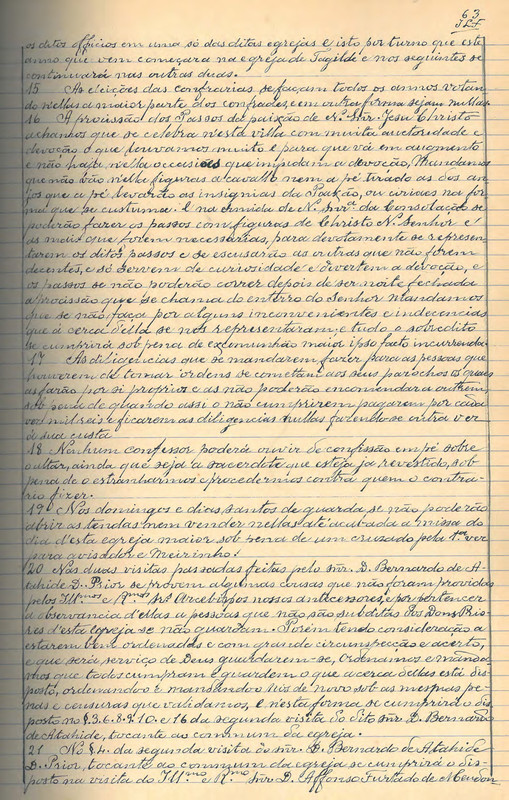 63
os ditos officios em uma só das ditas egrejas e isto por turno que este
anno que vem começara na egreja de Tagilde e nos seguintes se
continuará nas outras duas.
15 As eleições das confrarias se façam todos os annos votan
do nellas a maior parte dos confrades, e em outra forma sejam nullas.
16 A procissão dos Passos da paixão de N. Snr. Jesu Christo
achamos que se celebra nesta villa com muita auctoridade e
devoção o que louvamos muito e para que vá em augmento
e não haja nella occasiões que impidam a devoção, Mandamos
que não vão nella figuras a cavallo nem a pé tirado as dos an
jos que a pé levarão as insignias da Paixão, ou coricas na for
ma que se custuma. E na ermida de N. Snrª da Consolação se
poderão fazer os passos com figuras de Christo N. Senhor e
as mais que forem necessarias, para devotamente se represen
tarem os ditos passos e se escusarão as outras que não forem
decentes, e só servem de curiosidade e divertem a devoção, e
os passos se não poderão correr depois de ser noite fechada
a procissão que se chama do enterro do Senhor Mandamos
que se não faça por alguns inconvenientes e indecencias
que á cerca d'ella se nos representaram, e tudo o sobredito
se cumprirá sob pena de excomunhão maior ipso facto incurrenda
17 As diligencias que se mandarem fazer para as pessoas que
houverem de tomar ordens se comettam aos seus parochos os quaes
as farão por si proprios e as não poderão encommendar a outrem,
sob pena de quando assi o não cumprirem pagarem por cada
vez mil reis e ficarem as diligencias nullas fazendo-se outra vez
á sua custa
18 Nenhum confessor poderá ouvir de confissão em pé sobre
o altar, ainda que seja a sacerdote que esteja já revestido, sob
pena de o estranharmos e procedermos contra quem o contra-
rio fizer.
19 Nos domingos e dias santos de guarda se não poderão
abrir as tendas nem vender nellas até acabada a missa do
dia d'esta egreja maior sob pena de um cruzado pela 1ª vez
para guisador e Meirinho.
20 Nas duas visitas passadas feitas pelo snr. D. Bernardo de A-
tahide D. Prior se provem algumas cousas que não foram providas
pelos Illmos e Rmos Arcebispos nossos antecessores, e por pertencer
a observancia d'ellas a pessoas que não são subditas dos Dons Prio-
res d'esta egreja se não guardam. Porém tendo consideração a
estarem bem ordenadas e com grande circunspecção e acerto,
e que será serviço de Deus guardarem-se, Ordenamos e manda-
mos que todos cumpram e guardem o que acerca dellas está dis-
posto, ordenando-o e mandando-o Nós de novo sob as mesmas pe-
nas e censuras que validamos, E nesta forma se cumprirá o dis-
posto no §. 3. 6. 8. 9. 10. e 16 da segunda visita do dito snr. D. Bernardo
de Atahide, tocante ao commum da egreja.
21 No §4. da segunda visita do snr. D. Bernardo de Atahide
D. Prior, tocante ao commum da egreja se cumprirá o dis-
posto na visita do Illmo e Rmo Snr. D. Affonso Furtado de Mendon-